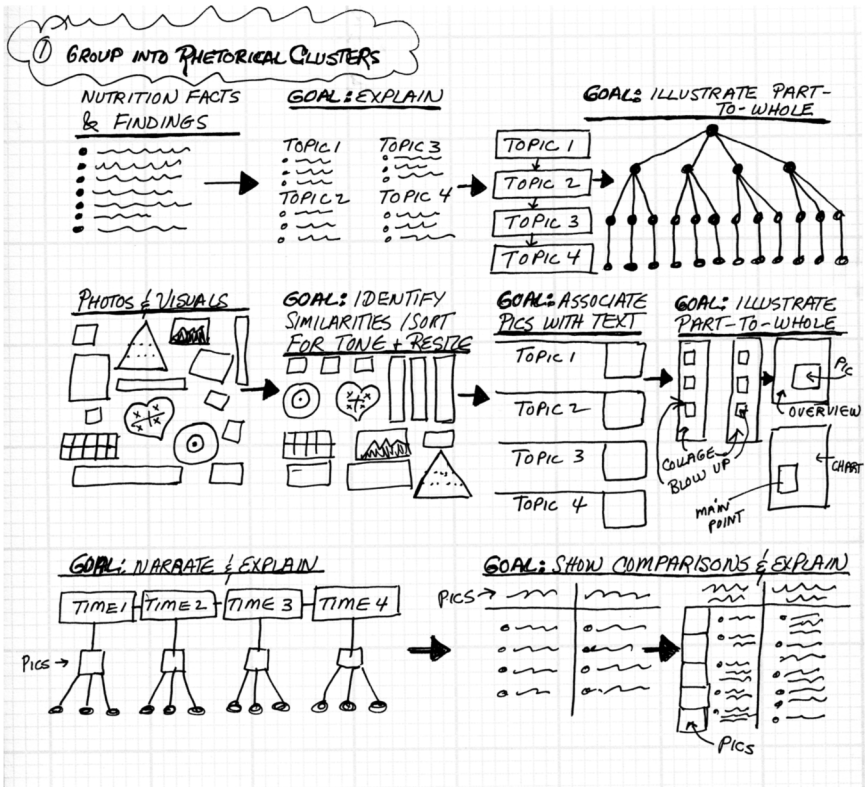 ① GROUP INTO RHETORICAL CLUSTERS
NUTRITION FACTS
& FINDINGS
GOAL: EXPLAIN
TOPIC 1
TOPIC 3
TOPIC 2
TOPIC 4
GOAL: ILLUSTRATE PART-
TO-WHOLE
TOPIC 1
TOPIC 2
TOPIC 3
TOPIC 4
PHOTOS & VISUALS
GOAL: IDENTIFY
SIMILARITIES / SORT
FOR TONE + RESIZE
GOAL: ASSOCIATE
PICS WITH TEXT
TOPIC 1
TOPIC 2
TOPIC 3
TOPIC 4
GOAL: ILLUSTRATE
PART-TO-WHOLE
PIC
OVERVIEW
COLLAGE
BLOW UP
CHART
MAIN
POINT
GOAL: NARRATE & EXPLAIN
TIME 1
TIME 2
TIME 3
TIME 4
PICS
GOAL: SHOW COMPARISONS & EXPLAIN
PICS
PICS